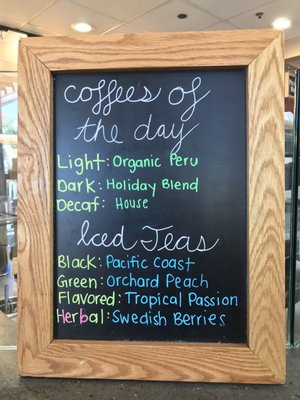 coffees of
the day
Light: Organic Peru
Dark: Holiday Blend
Decaf: House
Iced Teas
Black: Pacific Coast
Green: Orchard Peach
Flavored: Tropical Passion
Herbal: Swedish Berries